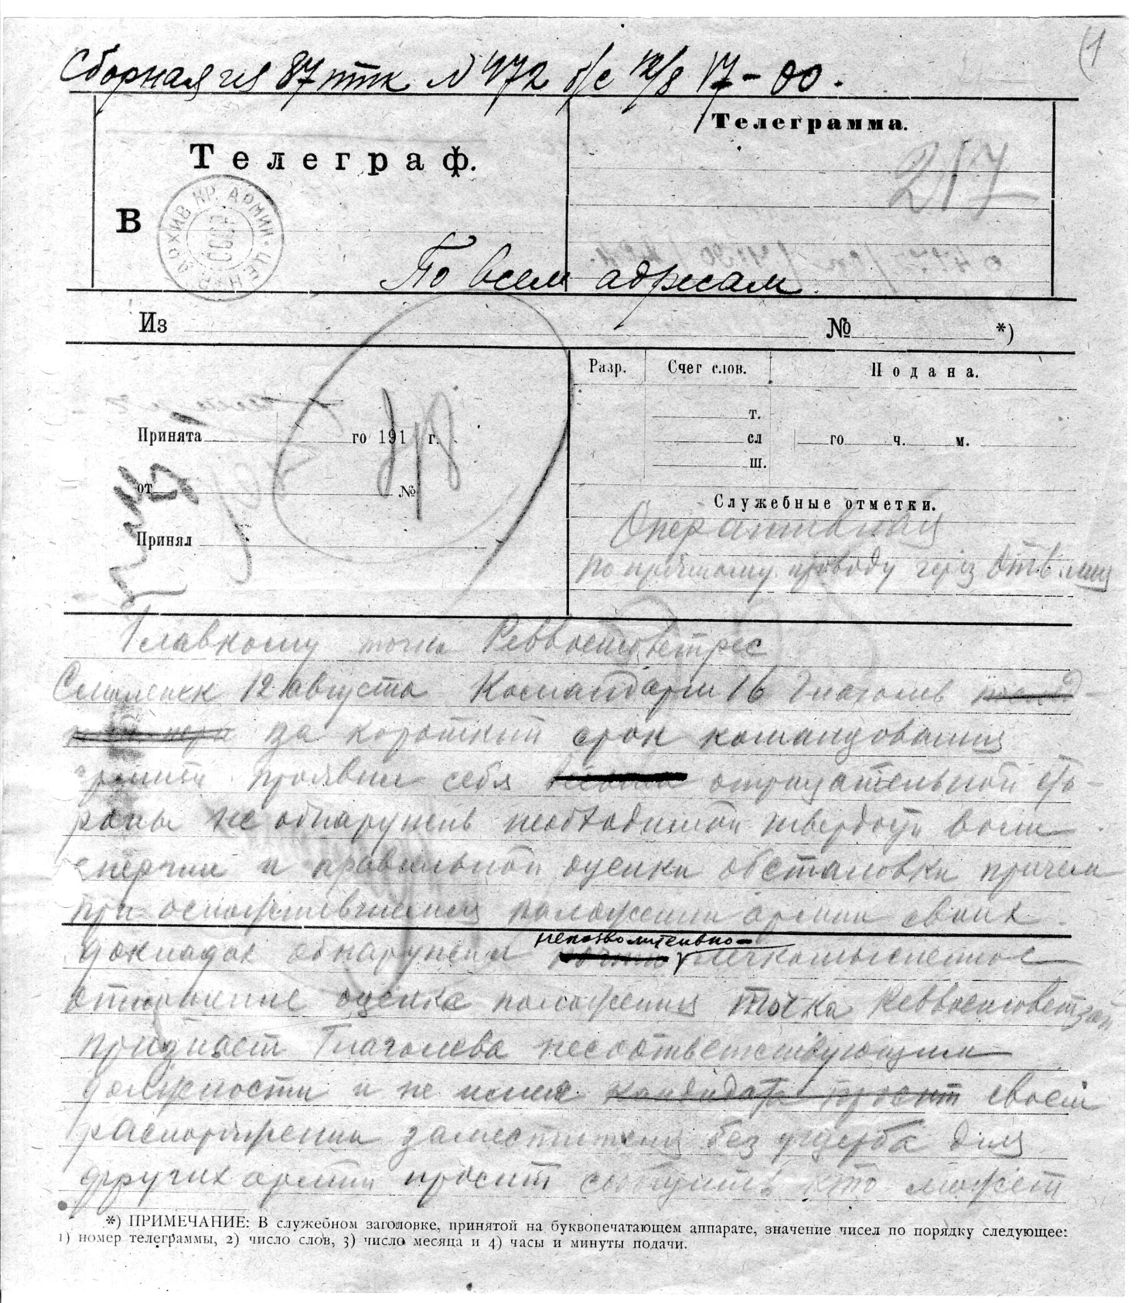 Сборная ги 87 птк N 472 б/с 12/8 17-00.
(1
Телеграф.
Телеграмма.
217
В
АРХИВ КР. АРМИИ · ЦЕНТР.
СССР
По всем адресам
Из
№
*)
Разр.
Счег слов.
Подана.
Принята
го 191 г.
т.
сл
го ч. м.
от
№
ш.
Служебные отметки.
Принял
Оперативная
по прямому проводу через Отв. лиц
Главкому точка Реввоенсоветрес
Смоленск 12 августа Командарм 16 Глаголев
за короткий срок командования
армией проявил себя отрицательной сто-
роны не обнаружив необходимой твердости воли
энергии и правильной оценки обстановки причем
при осложнившемся положении армии своих
докладах обнаружил непозволительно- легкомысленное
отношение оценка положения точка Реввоенсоветзап
признает Глаголева несоответствующим
должности и не имея кандидата просит своем
распоряжении заместителя без ущерба для
других армий просит сообщить кто может
*) ПРИМЕЧАНИЕ: В служебном заголовке, принятой на буквопечатающем аппарате, значение чисел по порядку следующее:
1) номер телеграммы, 2) число слов, 3) число месяца и 4) часы и минуты подачи.